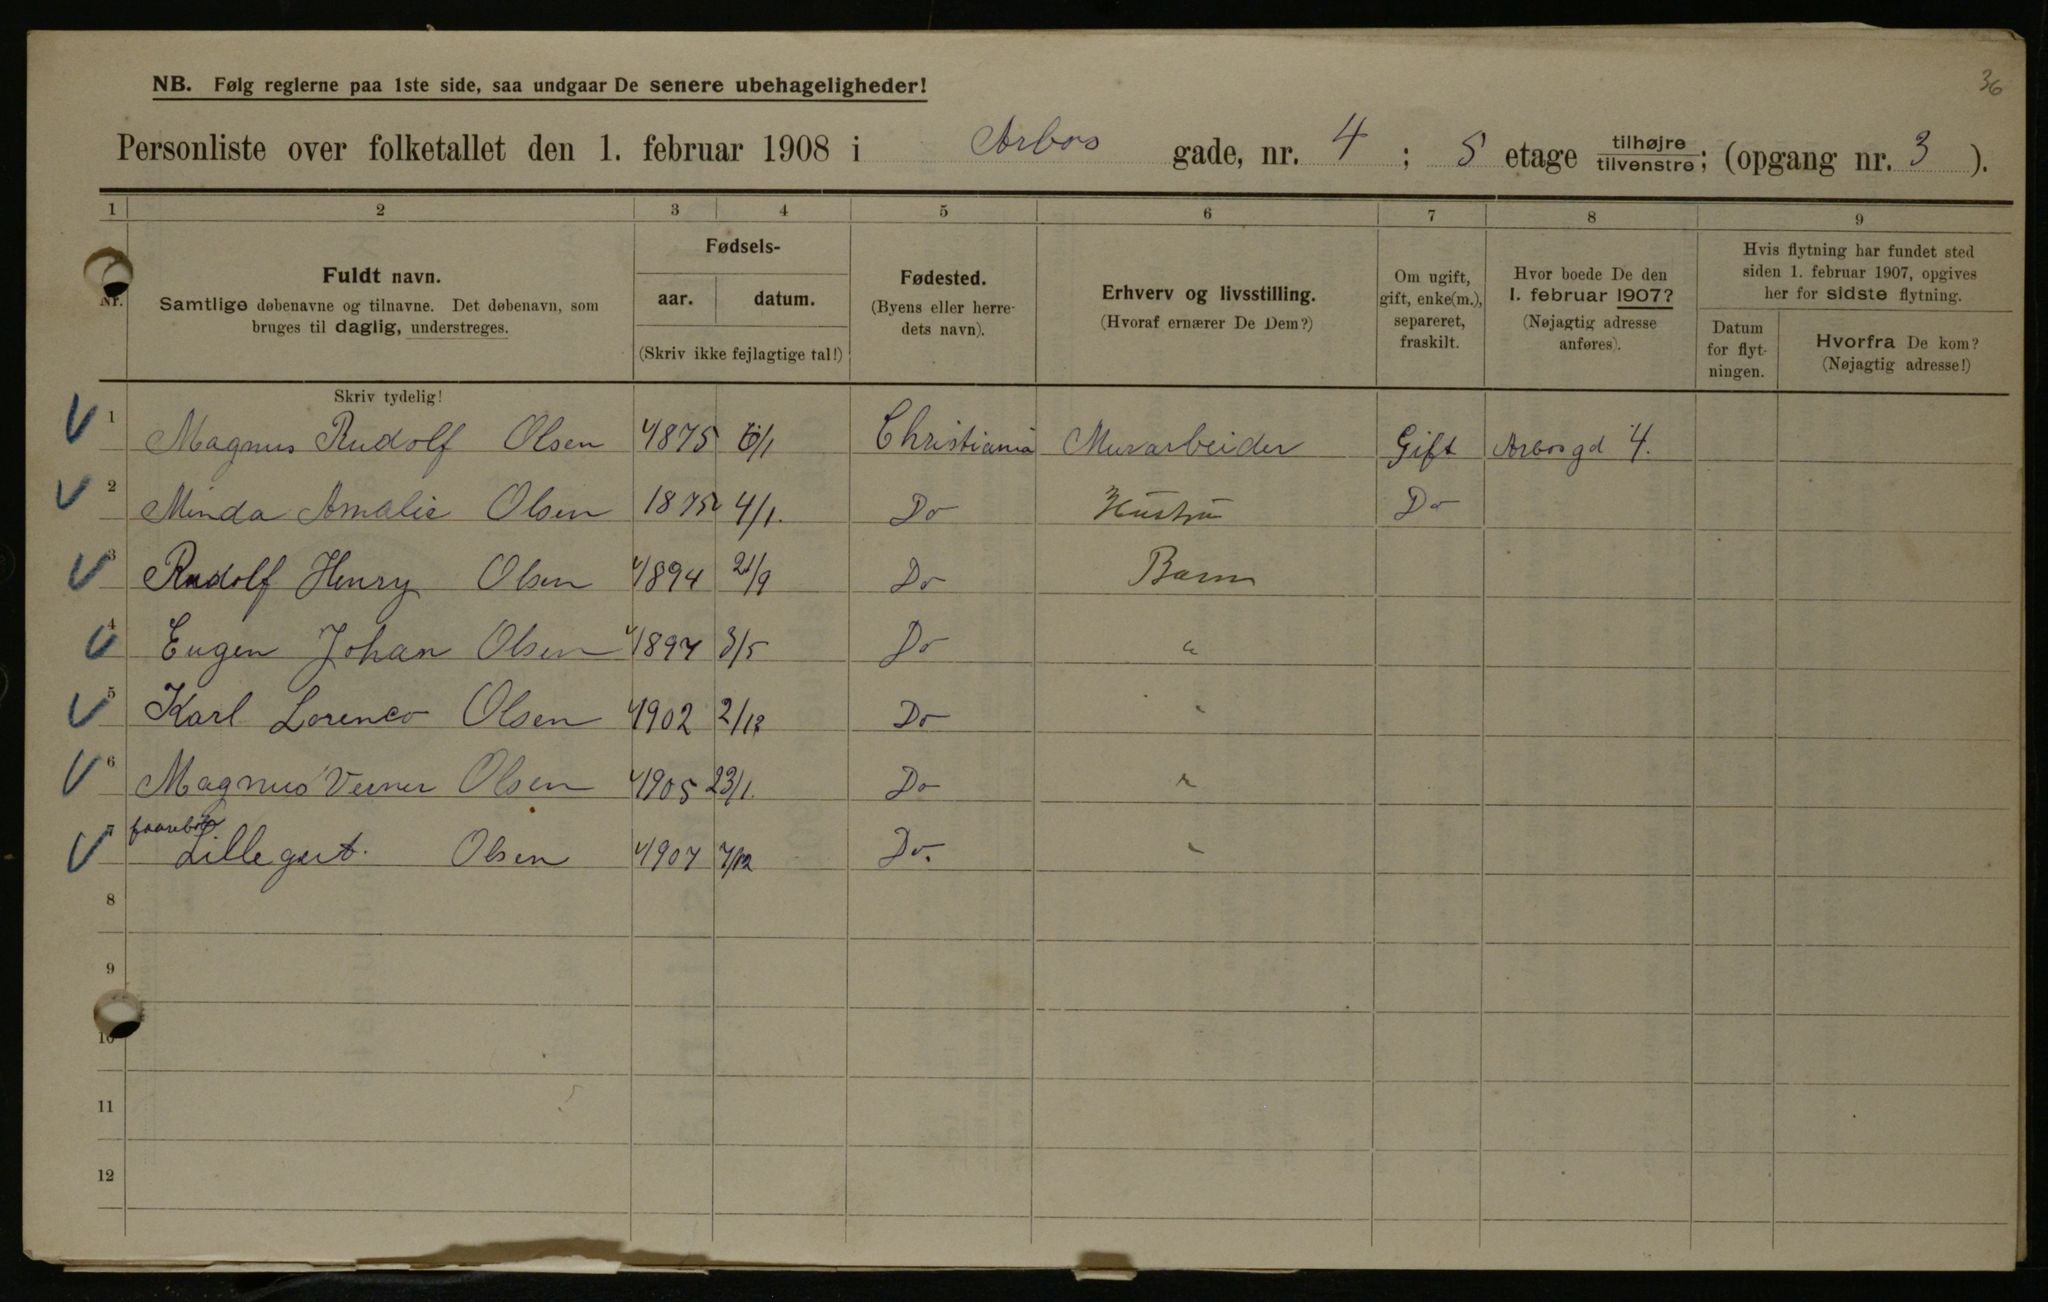 36
NB. Følg reglerne paa 1ste side, saa undgaar De senere ubehageligheder!
Personliste over folketallet den 1. februar 1908 i Arbos gade, nr. 4 ; 5 etage tilhøjre tilvenstre; (opgang nr. 3 ).
1 2 3 4 5 6 7 8 9
Nr.
Fuldt navn.
Samtlige døbenavne og tilnavne. Det døbenavn, som
bruges til daglig, understreges.
Fødsels-
aar. datum.
(Skriv ikke fejlagtige tal!)
Fødested.
(Byens eller herre-
dets navn).
Erhverv og livsstilling.
(Hvoraf ernærer De Dem?)
Om ugift,
gift, enke(m.),
separeret,
fraskilt.
Hvor boede De den
1. februar 1907?
(Nøjagtig adresse
anføres).
Hvis flytning har fundet sted
siden 1. februar 1907, opgives
her for sidste flytning.
Datum
for flyt-
ningen.
Hvorfra De kom?
(Nøjagtig adresse!)
Skriv tydelig!
1 Magnus Rudolf Olsen 1875 /1 Christiania Murarbeider Gift Arbosgd 4.
2 Minda Amalie Olsen 4/1. Do Hustru Do
3 Rudolf Henry Olsen 1894 21/9 Do Barn
4 Eugen Johan Olsen 1897 3/5 Do "
5 Karl Lorenco Olsen 1902 2/12 Do "
6 Magnus Verner Olsen 1905 23/1. Do "
7 Lillegut. Olsen 1907 7/12 Do. "
8
9
10
11
12